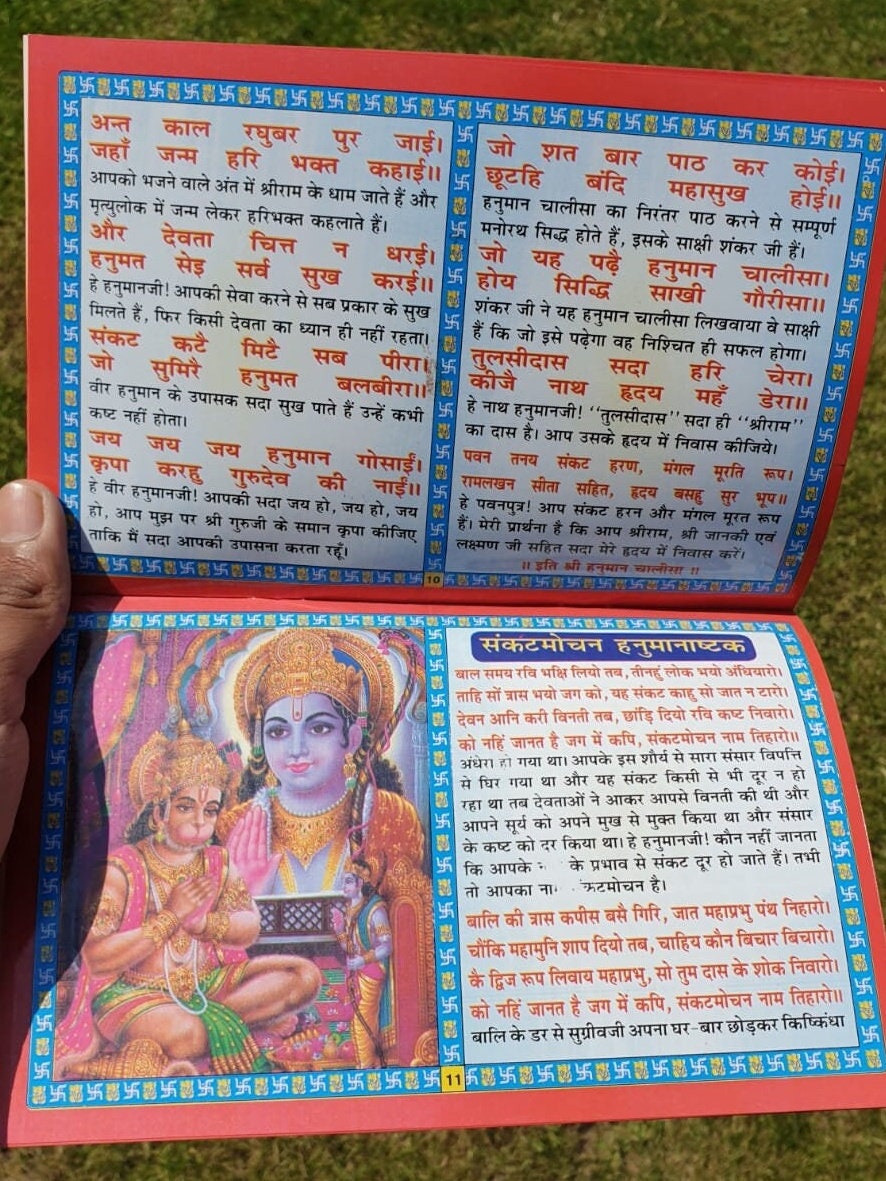 अन्त काल रघुबर पुर जाई।
जहाँ जन्म हरि भक्त कहाई॥
आपको भजने वाले अंत में श्रीराम के धाम जाते हैं और
मृत्युलोक में जन्म लेकर हरिभक्त कहलाते हैं।
और देवता चित्त न धरई।
हनुमत सेइ सर्व सुख करई॥
हे हनुमानजी! आपकी सेवा करने से सब प्रकार के सुख
मिलते हैं, फिर किसी देवता का ध्यान ही नहीं रहता।
संकट कटै मिटै सब पीरा।
जो सुमिरै हनुमत बलबीरा॥
वीर हनुमान के उपासक सदा सुख पाते हैं उन्हें कभी
कष्ट नहीं होता।
जय जय जय हनुमान गोसाईं।
कृपा करहु गुरुदेव की नाईं॥
हे वीर हनुमानजी! आपकी सदा जय हो, जय हो, जय
हो, आप मुझ पर श्री गुरुजी के समान कृपा कीजिए
ताकि मैं सदा आपकी उपासना करता रहूँ।
जो शत बार पाठ कर कोई।
छूटहि बंदि महासुख होई॥
हनुमान चालीसा का निरंतर पाठ करने से सम्पूर्ण
मनोरथ सिद्ध होते हैं, इसके साक्षी शंकर जी हैं।
जो यह पढ़ै हनुमान चालीसा।
होय सिद्धि साखी गौरीसा॥
शंकर जी ने यह हनुमान चालीसा लिखवाया वे साक्षी
हैं कि जो इसे पढ़ेगा वह निश्चित ही सफल होगा।
तुलसीदास सदा हरि चेरा।
कीजै नाथ हृदय महँ डेरा॥
हे नाथ हनुमानजी! ‘‘तुलसीदास’’ सदा ही ‘‘श्रीराम’’
का दास है। आप उसके हृदय में निवास कीजिये।
पवन तनय संकट हरण, मंगल मूरति रूप।
रामलखन सीता सहित, हृदय बसहु सुर भूप॥
हे पवनपुत्र! आप संकट हरन और मंगल मूरत रूप
हैं। मेरी प्रार्थना है कि आप श्रीराम, श्री जानकी एवं
लक्ष्मण जी सहित सदा मेरे हृदय में निवास करें।
॥ इति श्री हनुमान चालीसा ॥
10
संकटमोचन हनुमानाष्टक
बाल समय रवि भक्षि लियो तब, तीनहुं लोक भयो अंधियारो।
ताहि सों त्रास भयो जग को, यह संकट काहु सो जात न टारो।
देवन आनि करी विनती तब, छांड़ि दियो रवि कष्ट निवारो।
को नहिं जानत है जग में कपि, संकटमोचन नाम तिहारो॥
अंधेरा हो गया था। आपके इस शौर्य से सारा संसार विपत्ति
से घिर गया था और यह संकट किसी से भी दूर न हो
रहा था तब देवताओं ने आकर आपसे विनती की थी और
आपने सूर्य को अपने मुख से मुक्त किया था और संसार
के कष्ट को दर किया था। हे हनुमानजी! कौन नहीं जानता
कि आपके के प्रभाव से संकट दूर हो जाते हैं। तभी
तो आपका कटमोचन है।
बालि की त्रास कपीस बसै गिरि, जात महाप्रभु पंथ निहारो।
चौंकि महामुनि शाप दियो तब, चाहिय कौन बिचार बिचारो।
कै द्विज रूप लिवाय महाप्रभु, सो तुम दास के शोक निवारो।
को नहिं जानत है जग में कपि, संकटमोचन नाम तिहारो॥
बालि के डर से सुग्रीवजी अपना घर-बार छोड़कर किष्किंधा
11